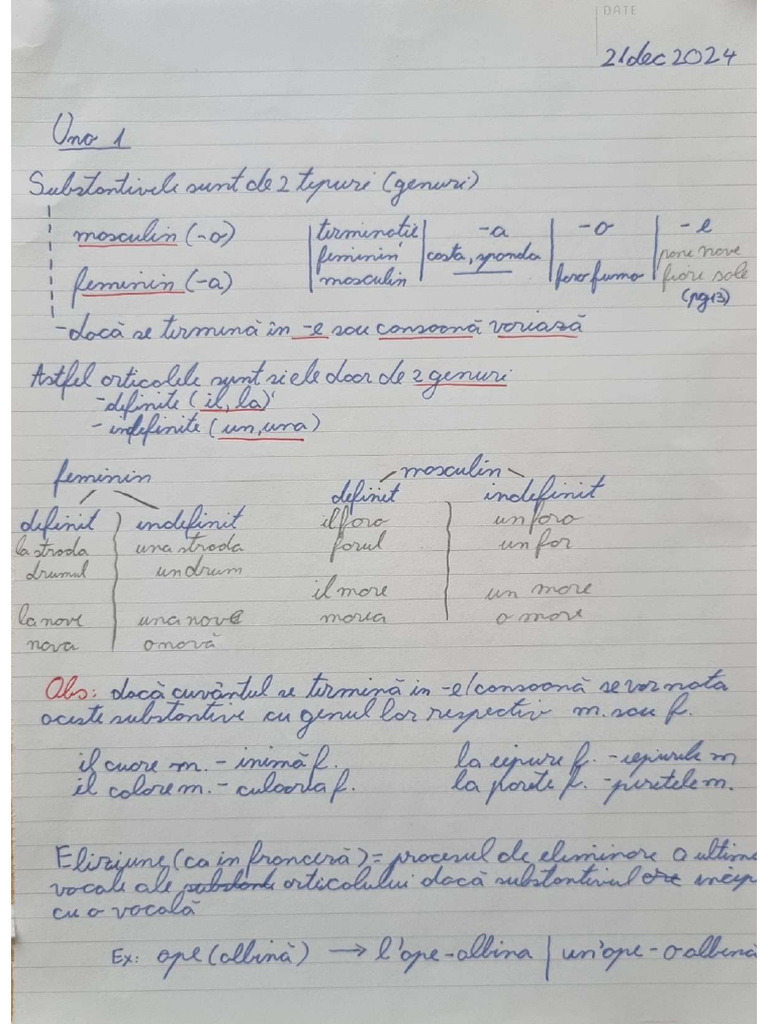 DATE
21dec 2024
Uno 1
Substantivele sunt de 2 tipuri (genuri)
masculin (-o)
feminin (-a)
terminație | -a | -o | -e
feminin | casta, sponda | | pane nave
masculin | | faro fumo | fiore sale
(pg 13)
-dacă se termină în -e sau consoană variază
Astfel articolele sunt si ele doar de 2 genuri
-definite (il, la)
-indefinite (un, una)
feminin
definit | indefinit
la strada | una strada
drumul | un drum
la nave | una nave
nava | o navă
masculin
definit | indefinit
il faro | un faro
farul | un far
il mare | un mare
marea | o mare
Obs: dacă cuvântul se termină în -e/consoană se vor nota
aceste substantive cu genul lor respectiv m. sau f.
il cuore m. - inimă f. la iepure f. - iepurele m
il colore m. - culoarea f. la parete f. - peretele m.
Eliziune (ca in franceză) = procesul de eliminare a ultimei
vocale ale articolului dacă substantivul incep
cu o vocală
Ex: ape (albină) → l'ape - albina | un'ape - o albină